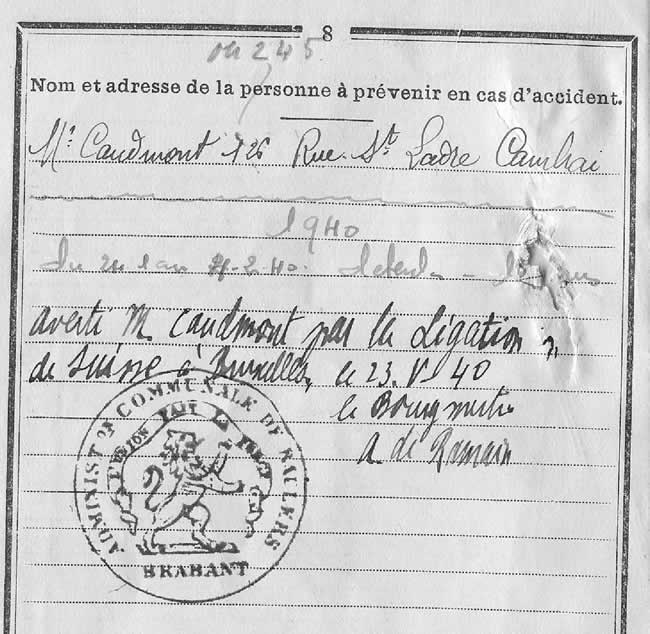 8
ou 245
Nom et adresse de la personne à prévenir en cas d'accident.
Mr. Caudmont 126 Rue St Ladre Cambrai
1940
Du 24 1 au 2-40.
averti M. Caudmont par la Légation
de Suisse à Bruxelles, le 23. V 40
le Bourgmestre
A de Ramain
ADMINISTON COMMUNALE DE BAULERS
L'UNION FAIT LA FORCE
BRABANT